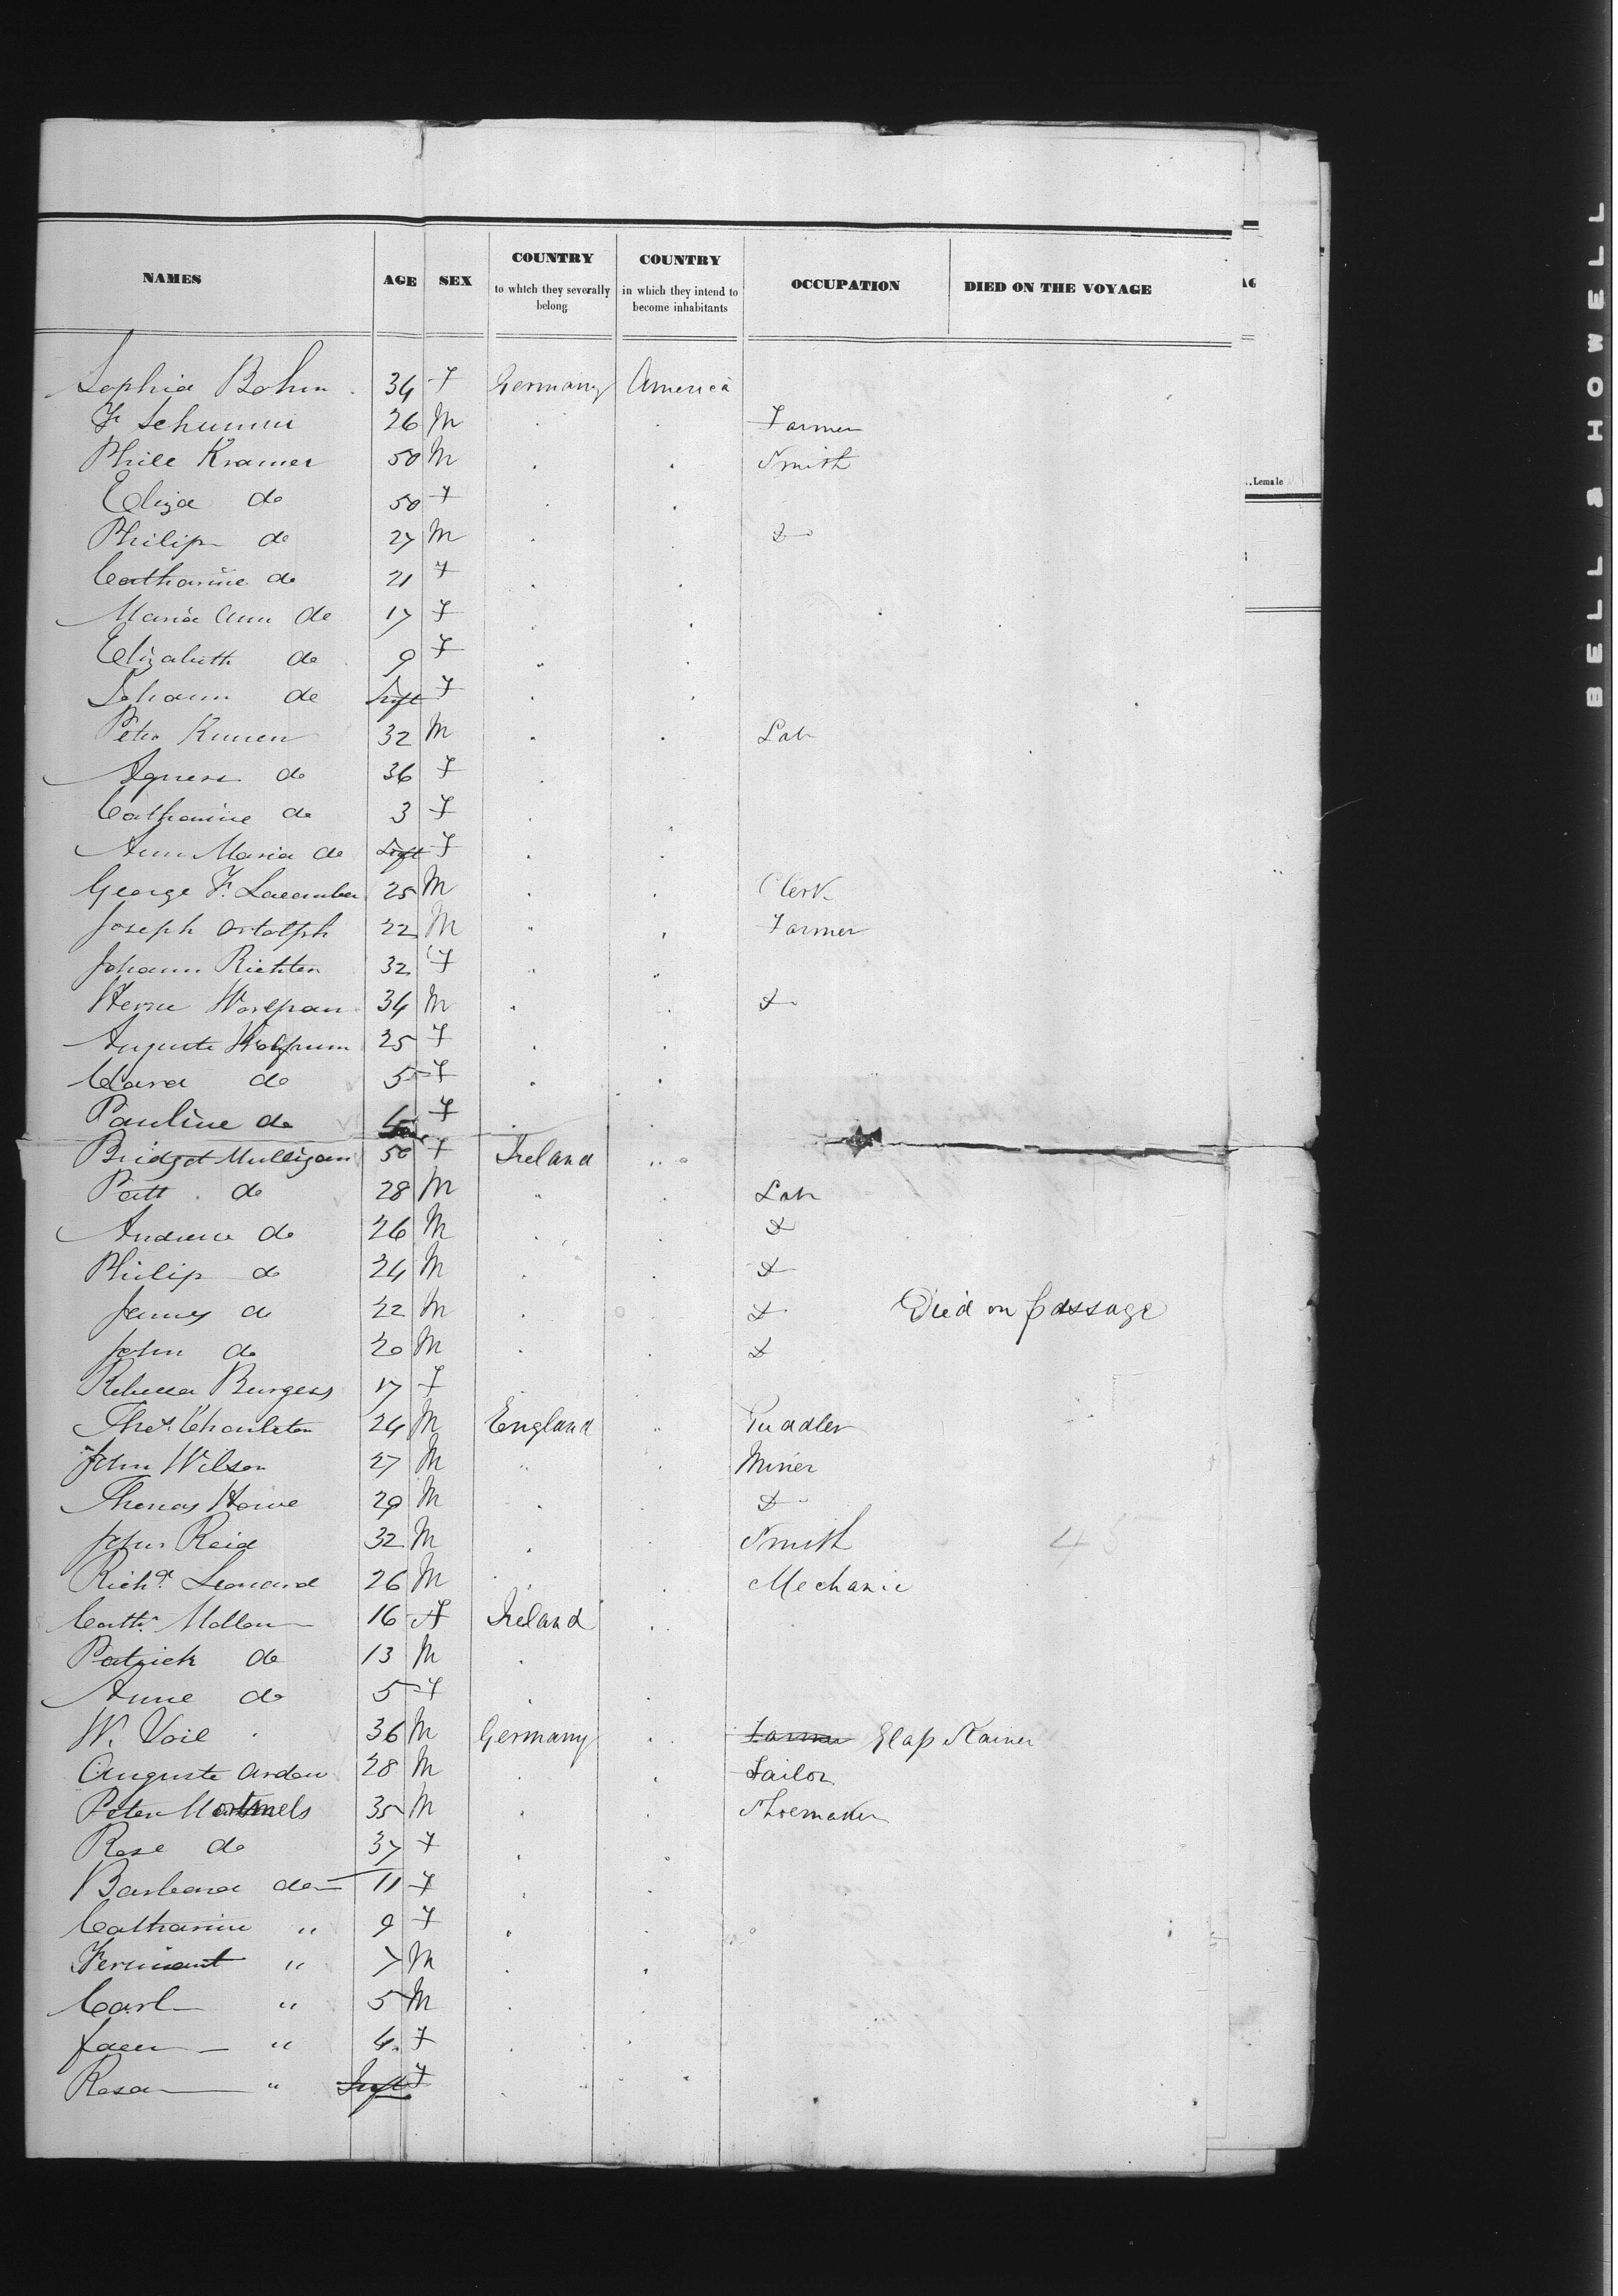 NAMES AGE SEX COUNTRY to which they severally belong COUNTRY in which they intend to become inhabitants OCCUPATION DIED ON THE VOYAGE
Sophia Bohm 34 F Germany America
Fr Schumm 26 M . . Farmer
Phill Kramer 50 M . . Smith
Eliza do 50 F . .
Philip do 27 M . . do
Catharine do 21 F . .
Maria Ann do 17 F . .
Elizabeth do 9 F " .
Johann do Inft F . .
Peter Kunen 32 M . . Lab
Agness do 36 F .
Catharine do 3 F . .
Ann Maria do Inft F . .
George F. 25 M . . Clerk
Joseph Ortolph 22 M " . Farmer
Johann Richter 32 F " "
34 M . . do
Auguste Wolfrum 25 F . .
Clara do 5 F . .
Pauline do 4 F . .
Bridget Mulligan 50 F Ireland "
Patt do 28 M " . Lab
Andrew do 26 M . . do
Philip do 24 M . . do
James do 22 M . do Died on passage
John do 20 M . . do
Rebecca Burgess 17 F
Thos. Charleton 24 M England " Puddler
John Wilson 27 M " . Miner
Thomas Howe 29 M . . do
John Reid 32 M . . Smith
Richd. Leonard 26 M . . Mechanic
Cath. Mollon 16 F Ireland . .
Patrick do 13 M .
Anne do 5 F . .
W. Voil 36 M Germany . . Farmer Glass Stainer
Auguste Arden 28 M . . Tailor
Peter 35 M . . Shoemaker
Rose do 37 F . .
Barbara do 11 F . .
Catharine " 9 F . .
" 7 M . .
Carl " 5 M . .
" 4 F . .
Rosa " Inft F . .
Female
BELL & HOWELL